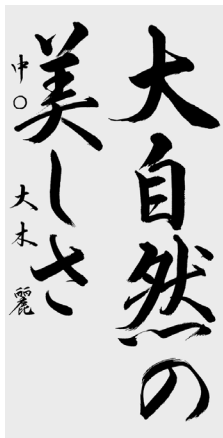 大自然の
美しさ
中〇 大木 麗